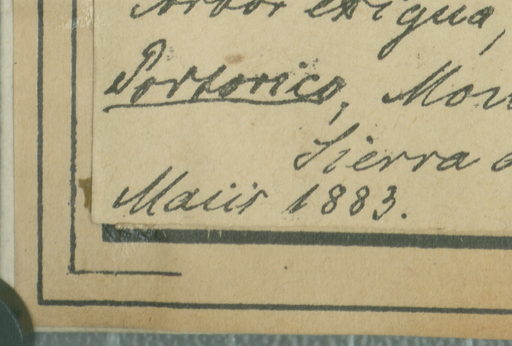 Arbor exigua,
Portorico, Mon
Sierra d
Maiis 1883.